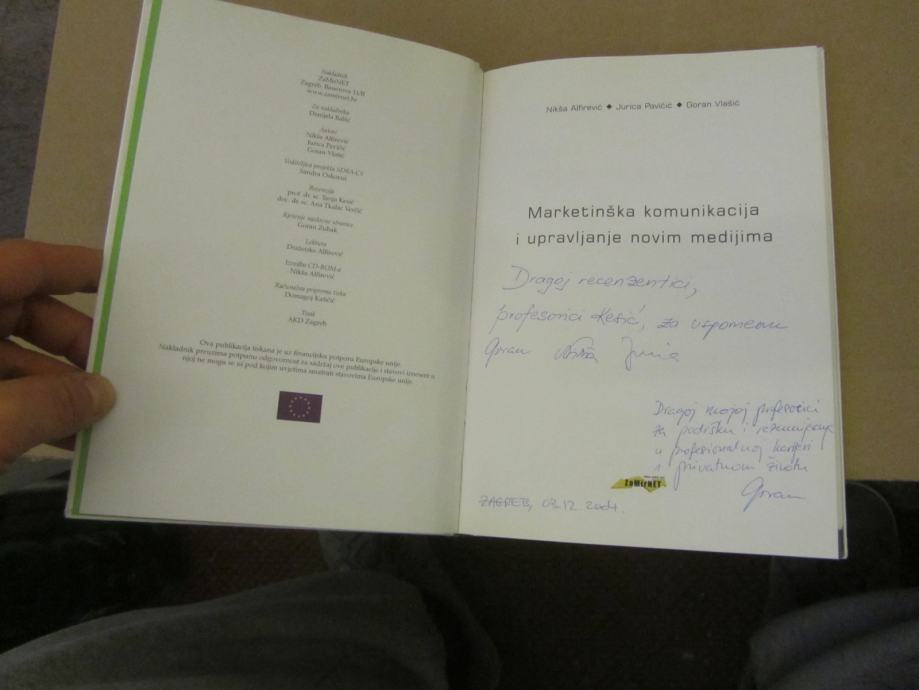 Nakladnik
ZaMirNET
Zagreb, Baunova 11/II
www.zamirnet.hr
Za nakladnika
Danijela Babić
Autori
Nikša Alfirević
Jurica Pavičić
Goran Vlašić
Voditeljica projekta SDRA-C3
Sandra
Recenzija
prof. dr. sc. Tanja Kesić
doc. dr. sc. Ana Tkalac Verčić
Rješenje naslovne stranice
Goran Zubak
Lektura
Draženko Alfirević
Izradba CD-ROM-a
Nikša Alfirević
Računalna priprema tiska
Domagoj Kaličić
Tisak
AKD Zagreb
Ova publikacija tiskana je uz financijsku potporu Europske unije.
Nakladnik preuzima potpunu odgovornost za sadržaj ove publikacije i stavovi izneseni u
njoj ne mogu se ni pod kojim uvjetima smatrati stavovima Europske unije.
Nikša Alfirević ◆ Jurica Pavičić ◆ Goran Vlašić
Marketinška komunikacija
i upravljanje novim medijima
Dragoj recenzentici,
profesorici Kesić, za uspomenu
Goran Nikša Jurica
Dragoj mojoj profesorici
za podršku i razumijevanje
u profesionalnoj karijeri
i privatnom životu
Goran
ZaMirNET
ZAGREB, 03.12.2004.